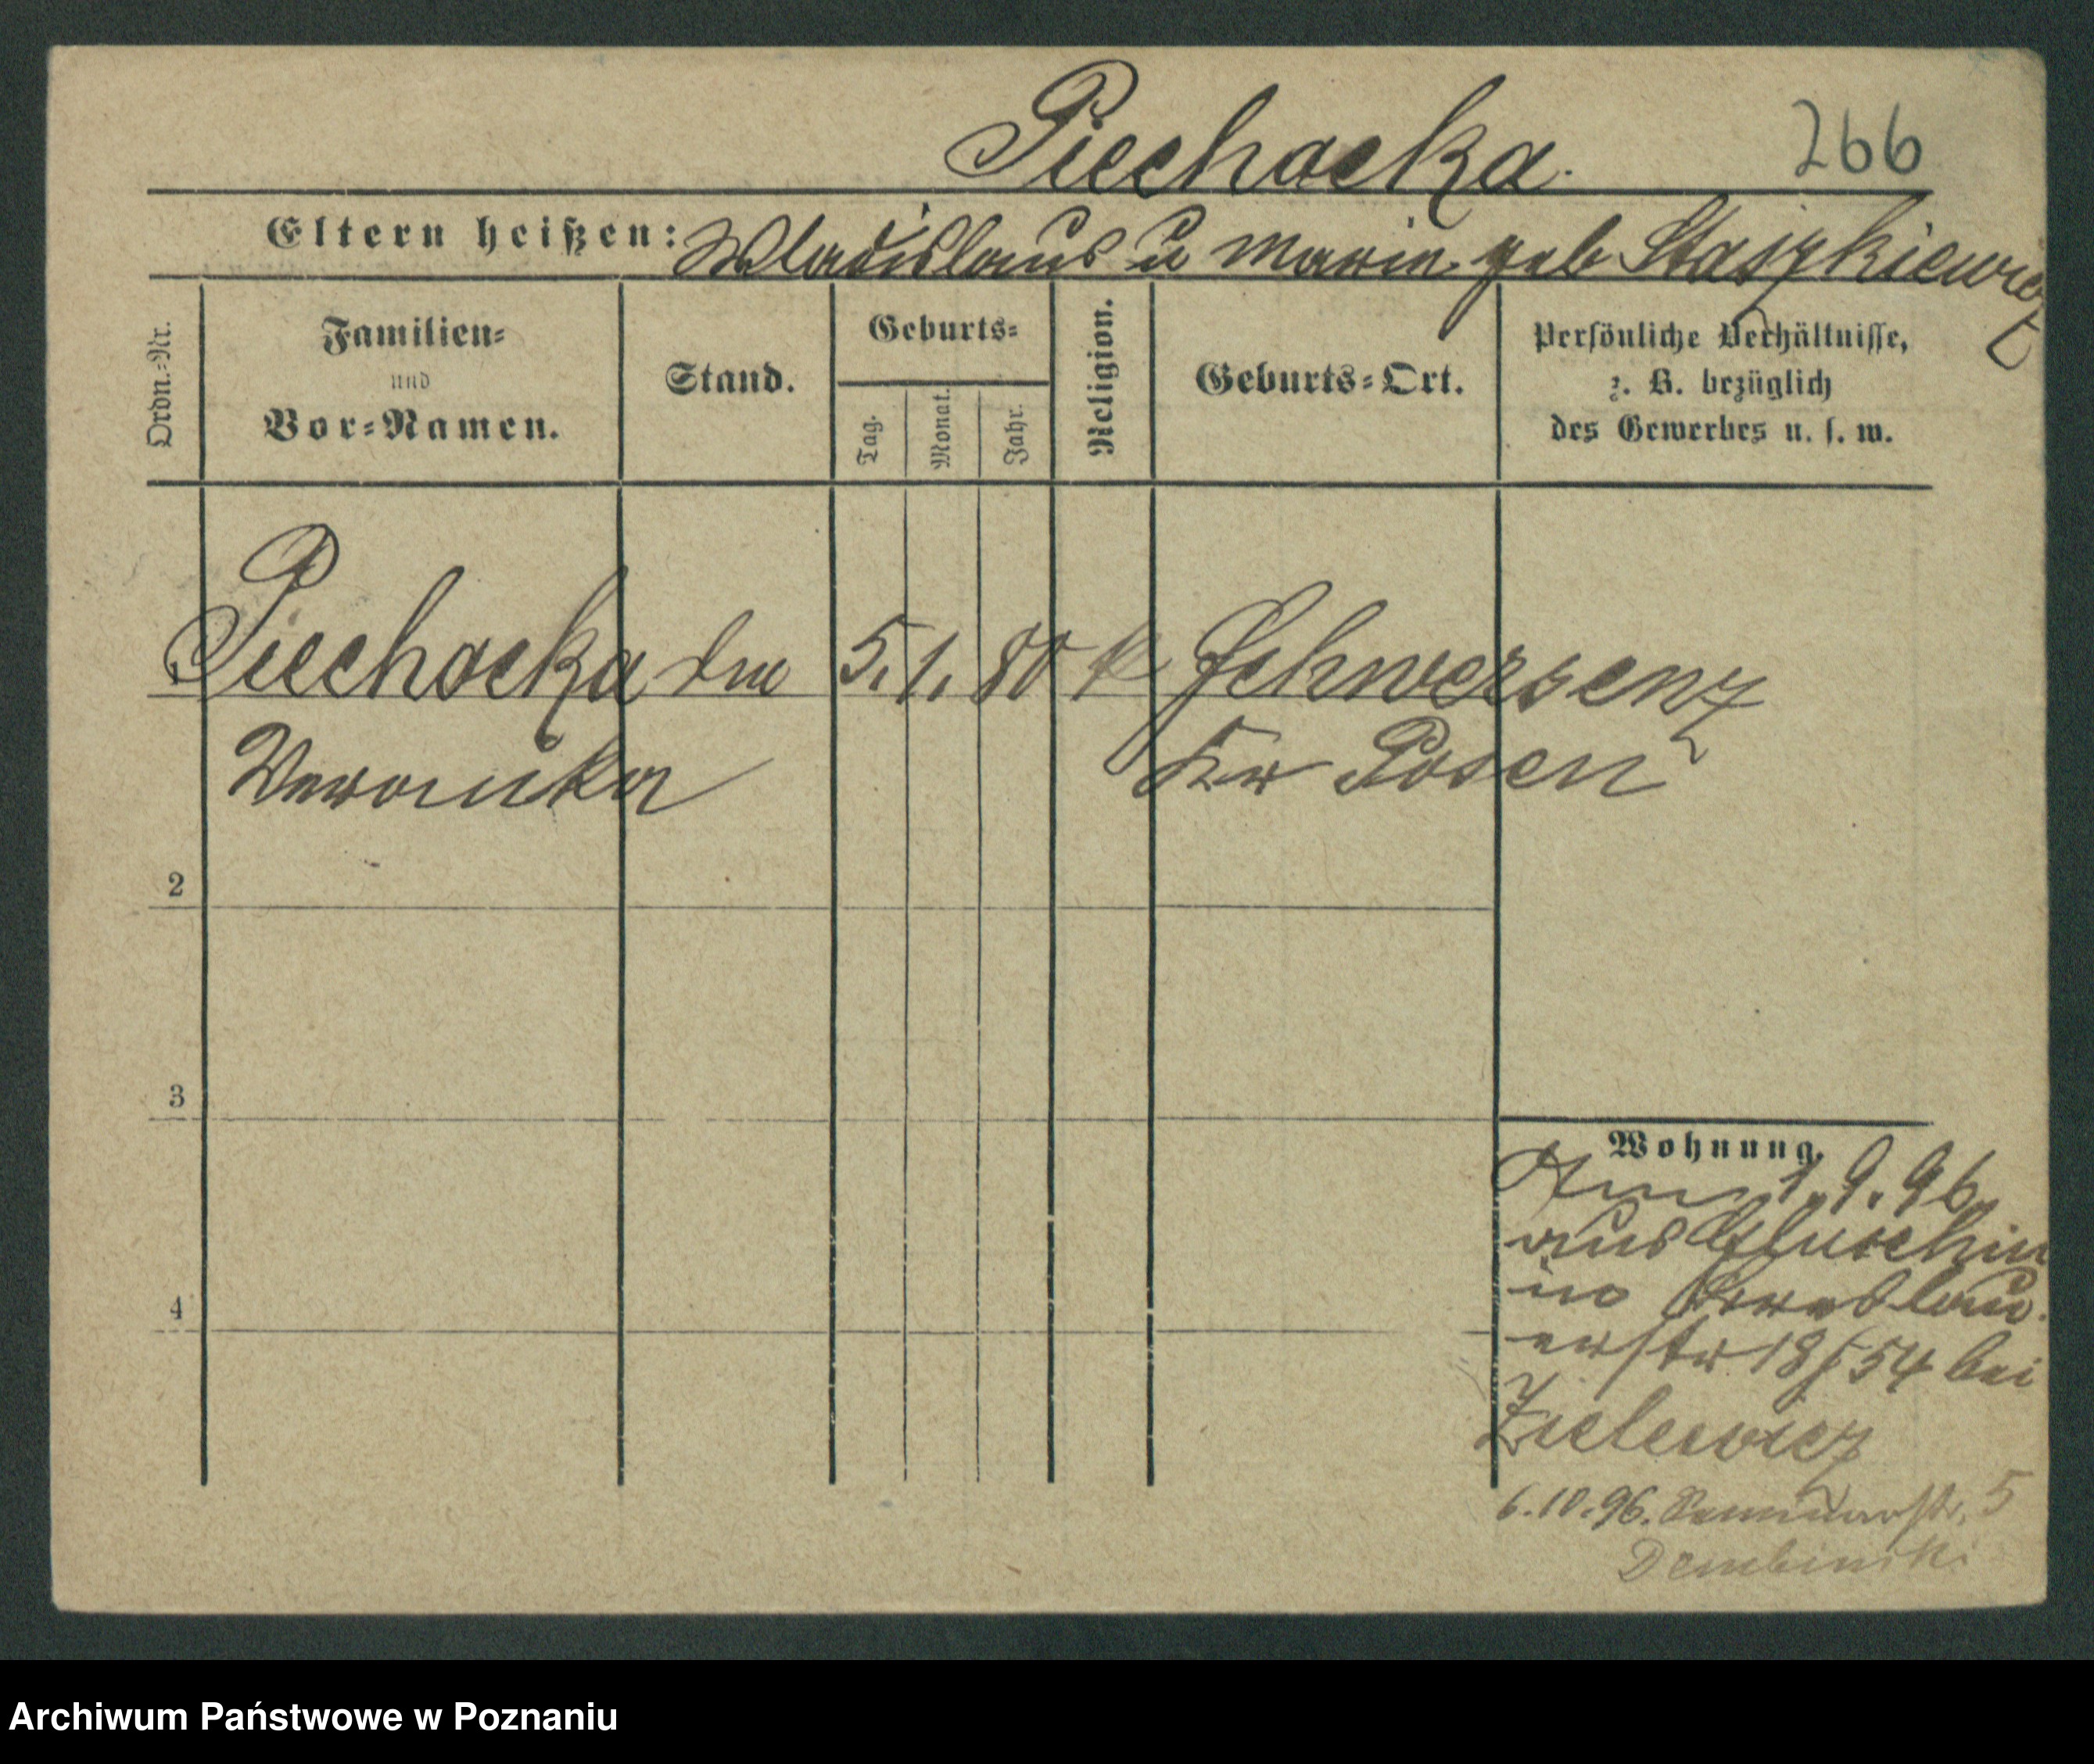 Piechocka.
266
Eltern heißen: Wladislaus u Marie geb Staszkiewicz
Ordn.-Nr.
Familien-
und
Vor-Namen.
Stand.
Geburts-
Tag.
Monat.
Jahr.
Religion.
Geburts-Ort.
Persönliche Verhältnisse,
z. B. bezüglich
des Gewerbes u. s. w.
Piechocka 5. 1. 80 k Schwersenz
Veronika Kr Posen
2
3
4
Wohnung.
1. 9. 96
aus Gluschin
in Breslau
erstr 18/54 bei
Zielewicz
6.10.96. Seminarstr. 5
Dembinski
Archiwum Państwowe w Poznaniu